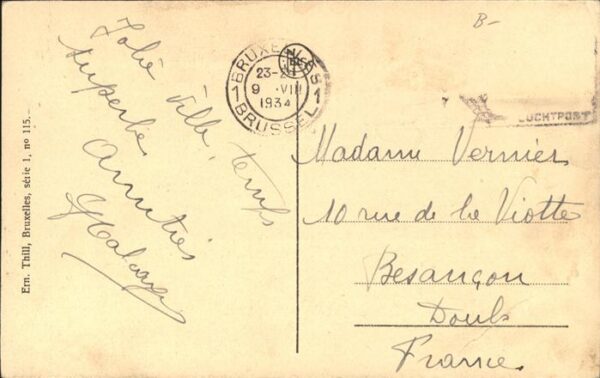 Jolie ville, temps
superbe
Amitiés
BRUXELLES
1 1
23-2
9 VIII
1934
BRUSSEL
B-
LUCHTPOST
Madame Vernier
10 rue de la Viotte
Besançon
Doubs
France.
Ern. Thill, Bruxelles, série 1, no 115.